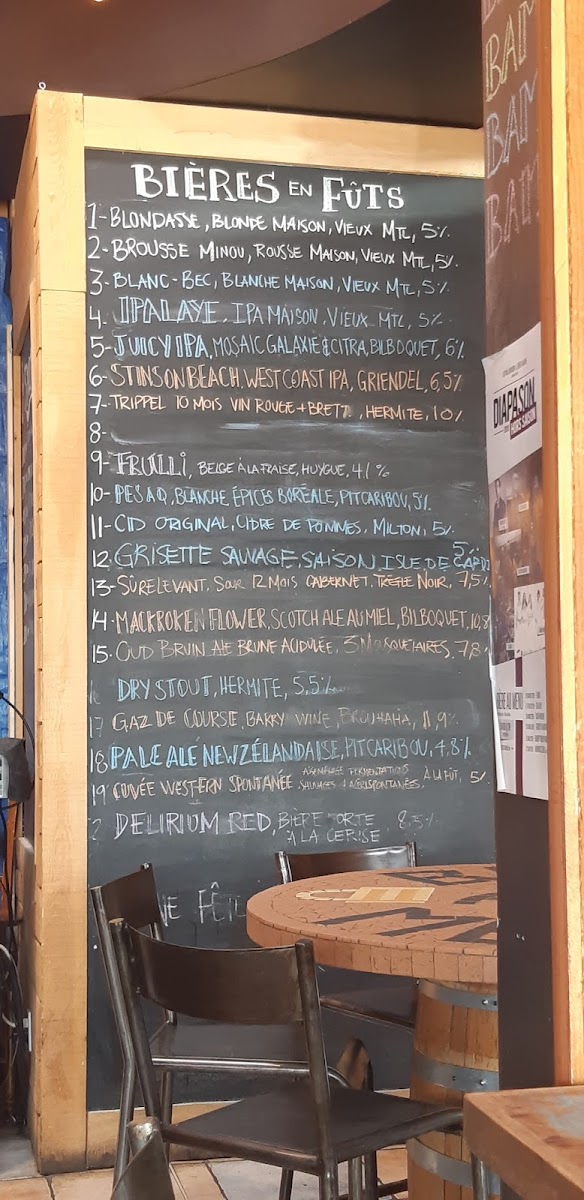 BIÈRES EN FÛTS
1- BLONDASSE, BLONDE MAISON, VIEUX MTL, 5%
2- BROUSSE MINOU, ROUSSE MAISON, VIEUX MTL, 5%.
3- BLANC-BEC, BLANCHE MAISON, VIEUX MTL, 5%
4. IPALAYE, IPA MAISON, VIEUX MTL, 5%
5- JUICY IPA, MOSAIC GALAXIE & CITRA, BILBOQUET, 6%
6- STINSON BEACH, WEST COAST IPA, GRIENDEL, 6,5%
7- TRIPPEL 10 MOIS VIN ROUGE + BRETT, HERMITE, 10%
8-
9- FRULLI, BELGE À LA FRAISE, HUYGUE, 4.1%
10- PESAQ, BLANCHE ÉPICES BORÉALE, PIT CARIBOU, 5%
11- CID ORIGINAL, CIDRE DE POMMES, MILTON, 5%
12 GRISETTE SAUVAGE, SAISON, ISLE DE GARDE 5%
13- SÛRELEVANT, SOUR 12 MOIS CABERNET, TRÈFLE NOIR, 7,5%
14- MACKROKEN FLOWER, SCOTCH ALE AU MIEL, BILBOQUET, 10,8
15. OUD BRUIN ALE BRUNE ACIDULÉE, 3 MOUSQUETAIRES, 7,8%
DRY STOUT, HERMITE, 5,5%
17 GAZ DE COURSE, BARLY WINE, BROUHAHA, 11,9%
18 PALE ALE NEWZÉLANDAISE, PIT CARIBOU, 4.8%
19 CUVÉE WESTERN SPONTANÉE ASSEMBLAGE FERMENTATIONS SAUVAGES & SPONTANÉES, À LA FÛT, 5%
2 DELIRIUM RED, BIÈRE FORTE À LA CERISE 8,5%
NE FÊTE
DIAPASON
HORS SAISON
BIÈRE AU MENU